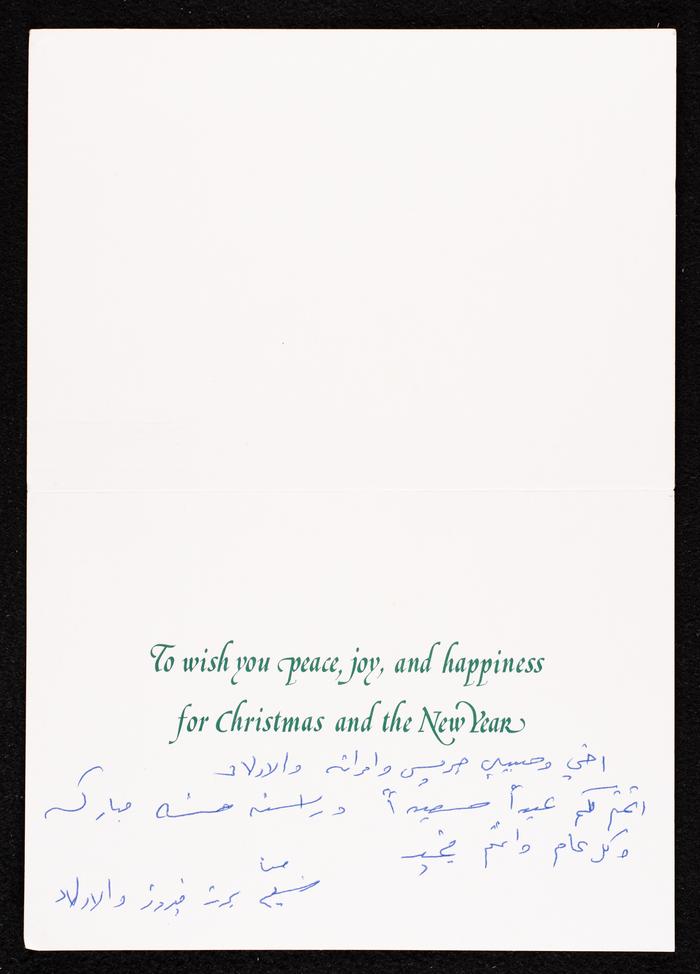 To wish you peace, joy, and happiness
for Christmas and the New Year
اخي وحبيبي جريس وامراته والاولاد
اتمنى لكم عيداً سعيداً وراسنه حسنه مباركه
وكل عام وانتم بخير
منا
بربر فيروز والاولاد